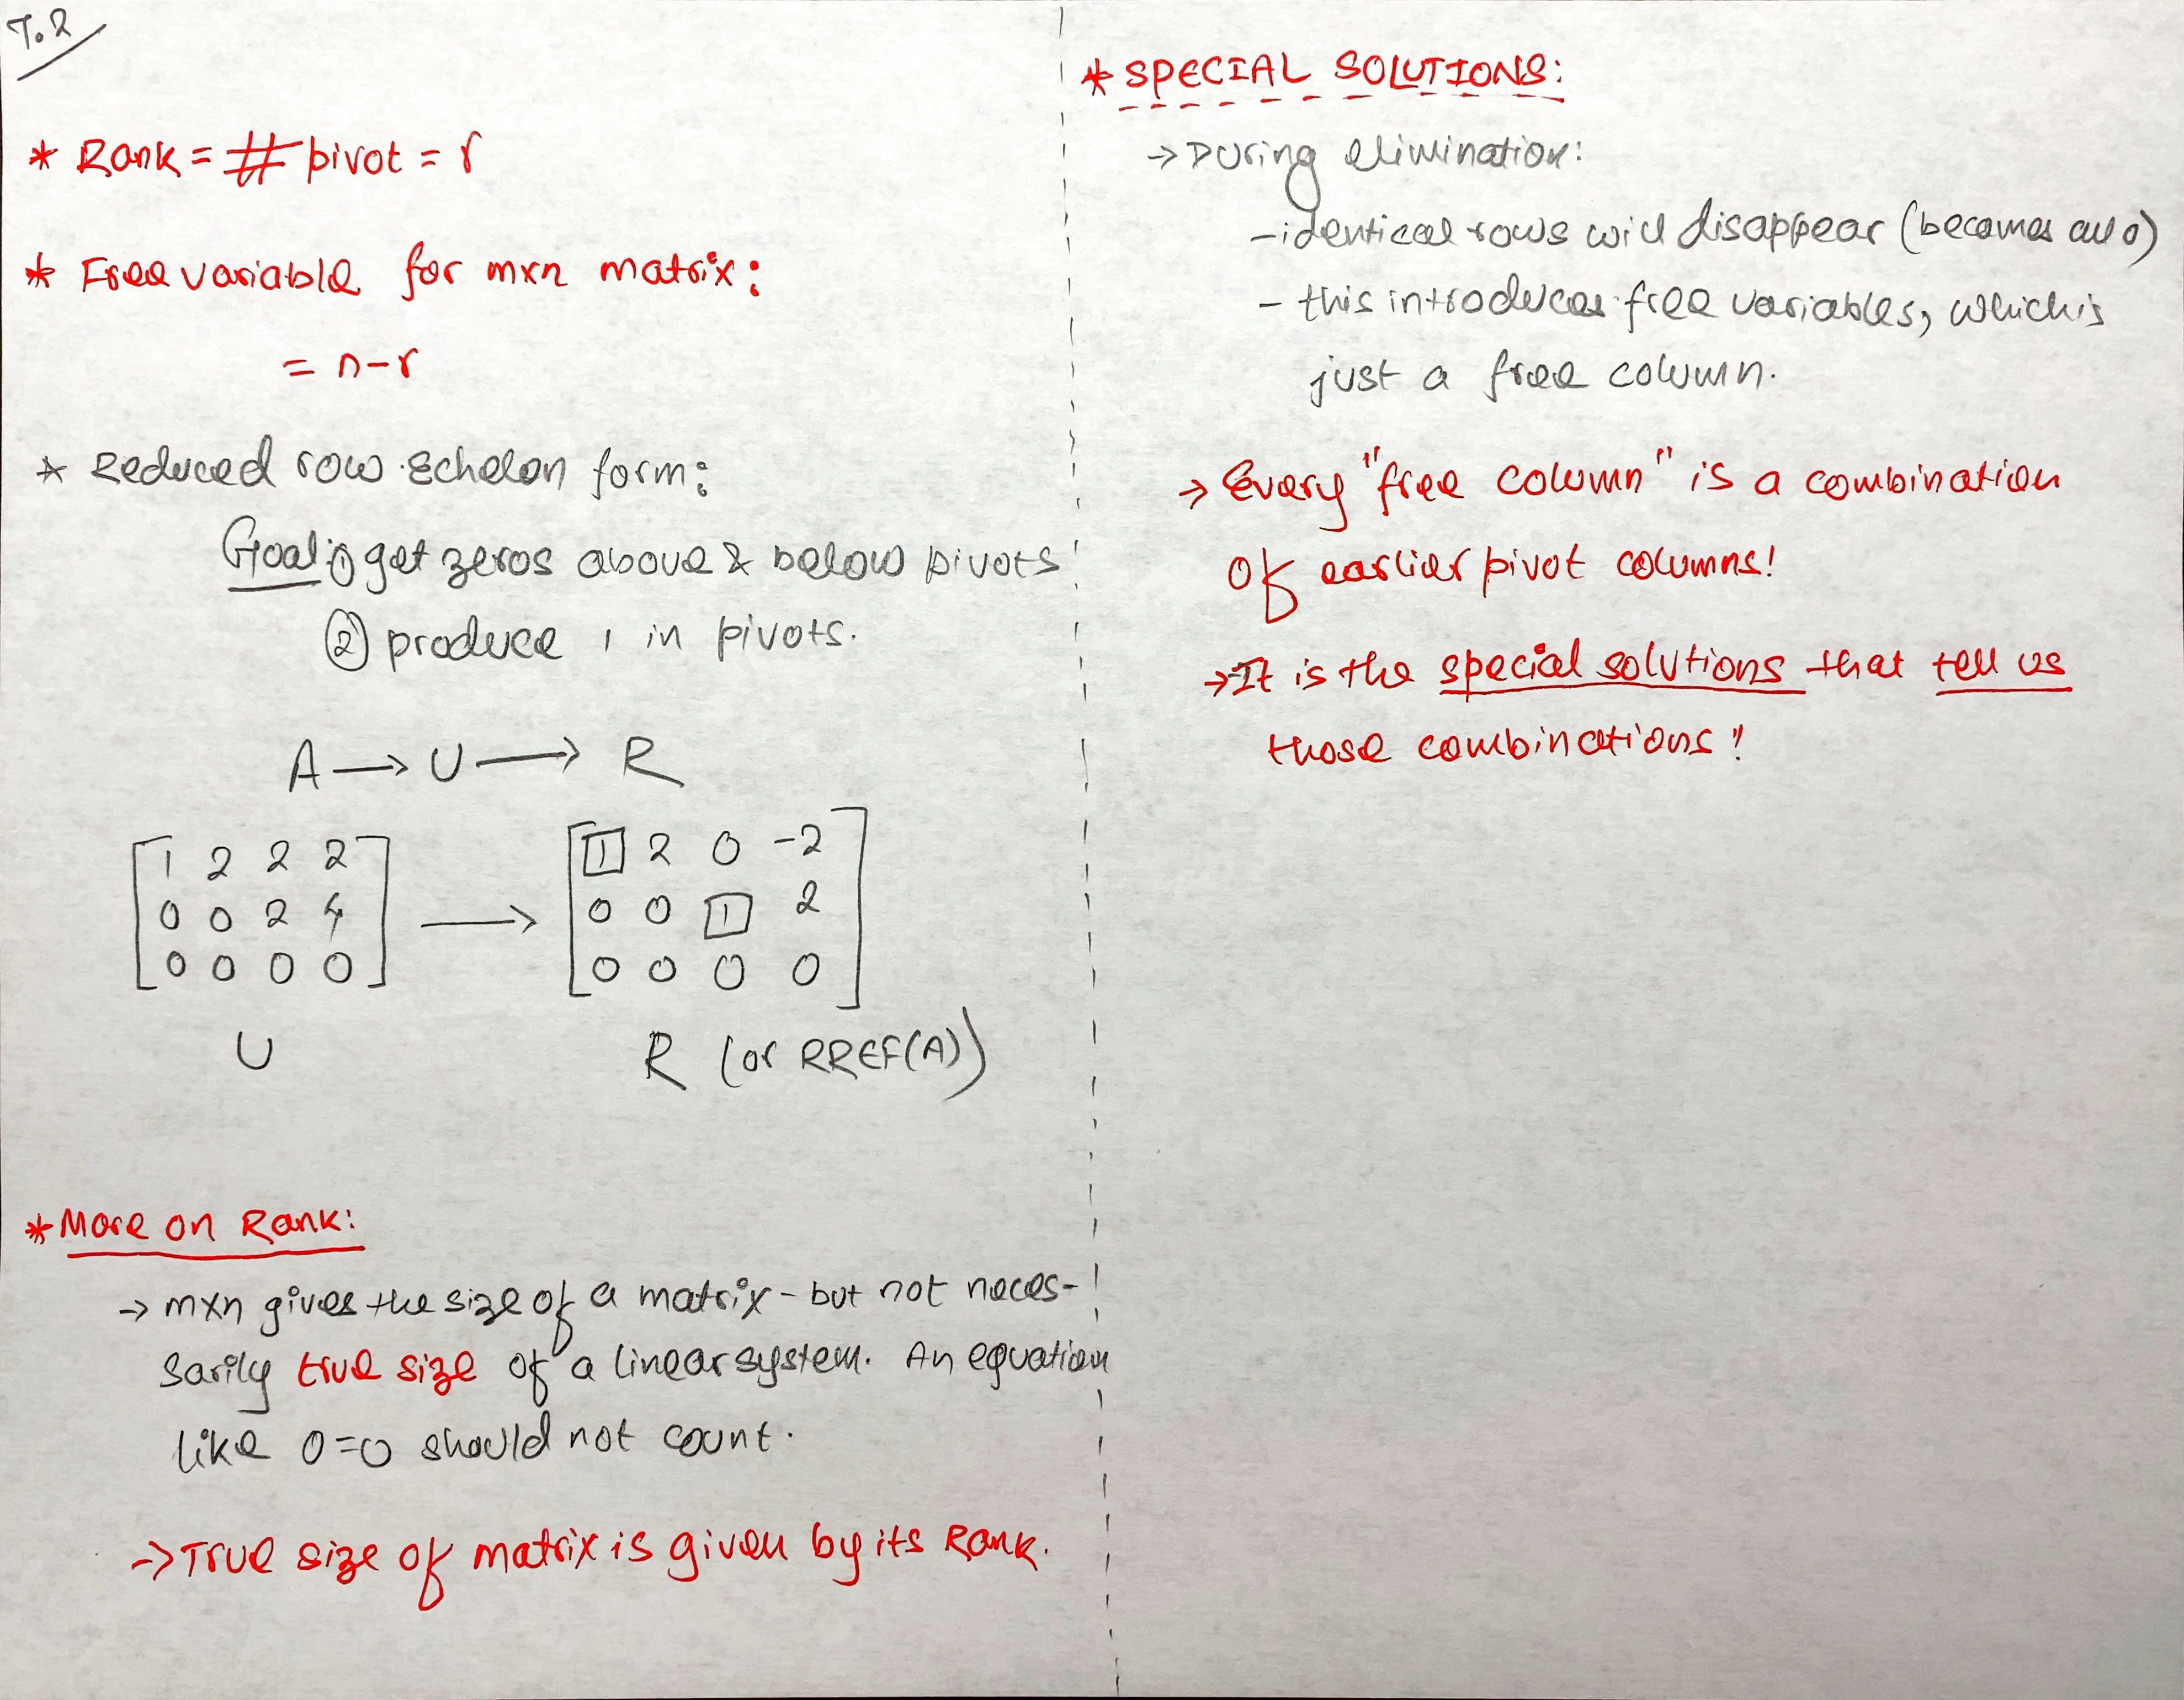 7.2
* Rank = # pivot = r
* Free variable for mxn matrix:
= n-r
* Reduced row Echelon form:
Goal: ① get zeros above & below pivots
② produce 1 in pivots.
A → U → R
1 2 2 2
0 0 2 4
0 0 0 0
→
1 2 0 -2
0 0 1 2
0 0 0 0
U
R (or RREF(A))
* More on Rank:
→ mxn gives the size of a matrix - but not neces-
sarily true size of a linear system. An equation
like 0=0 should not count.
→ True size of matrix is given by its Rank.
* SPECIAL SOLUTIONS:
→ During elimination:
- identical rows will disappear (becomes all 0)
- this introduces free variables, which is
just a free column.
→ Every "free column" is a combination
of earlier pivot columns!
→ It is the special solutions that tell us
those combinations!